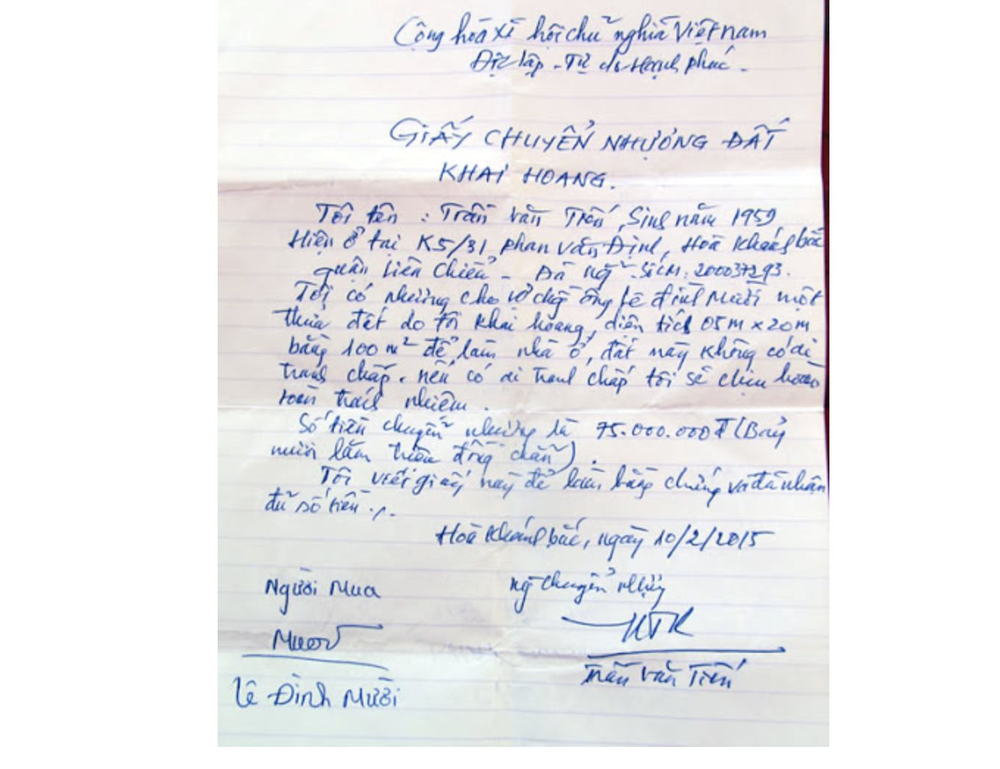 Cộng hoà xã hội chủ nghĩa Việt nam
Độc lập - Tự do Hạnh phúc.
GIẤY CHUYỂN NHƯỢNG ĐẤT
KHAI HOANG.
Tôi tên : Trần Văn Tiến, Sinh năm 1959
Hiện ở tại K5/31 Phan Văn Định, Hoà Khánh bắc
quận Liên Chiểu - Đà Ng~. Số CM: 200037293.
Tôi có nhường cho vợ chồng ông Lê đình Mười một
thửa đất do tôi khai hoang, diện tích 05m x 20m
bằng 100 m² để làm nhà ở, đất này không có ai
tranh chấp. nếu có ai tranh chấp tôi sẽ chịu hoàn
toàn trách nhiệm.
Số tiền chuyển nhường là 75.000.000đ (Bảy
mươi lăm triệu đồng chẵn).
Tôi viết giấy này để làm bằng chứng và đã nhận
đủ số tiền ./.
Hoà Khánh bắc, ngày 10/2/2015
Người Mua
ng chuyển nhượng
Mười
Lê Đình Mười
Trần Văn Tiến